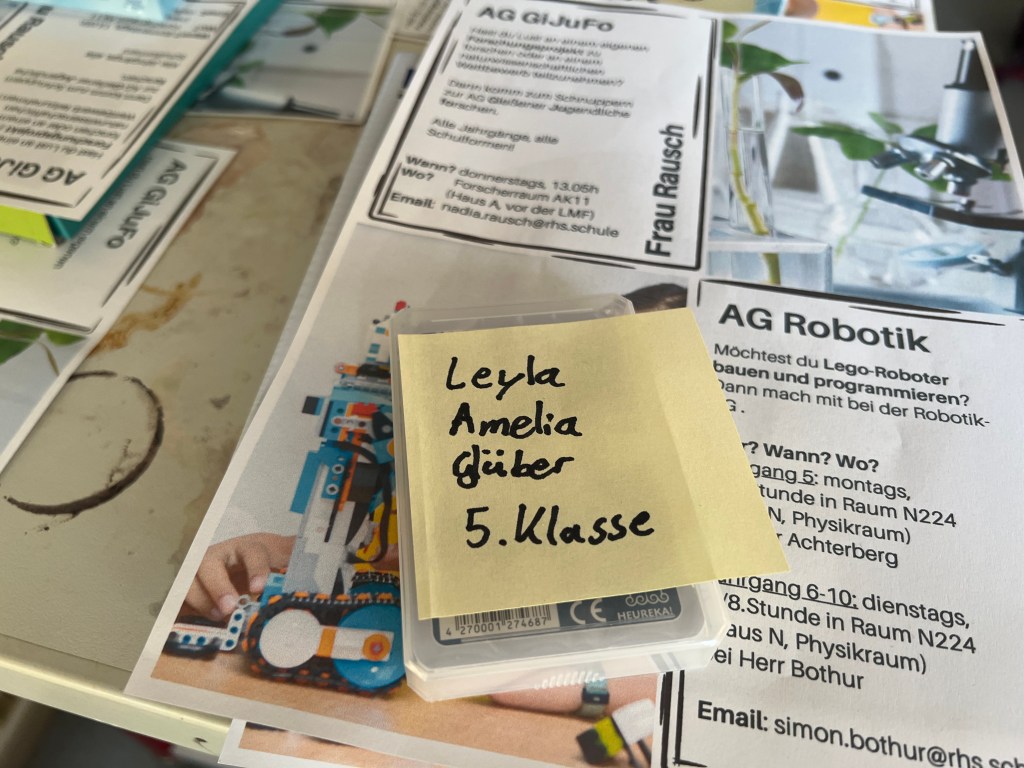 AG GiJuFo
Hast du Lust an einem eigenen
Forschungsprojekt zu
forschen oder an einem
naturwissenschaftlichen
Wettbewerb teilzunehmen?
Dann komm zum Schnuppern
zur AG Gießener Jugendliche
forschen.
Alle Jahrgänge, alle
Schulformen!
Wann? donnerstags, 13.05h
Wo? Forscherraum AK11
(Haus A, vor der LMF)
Email: nadia.rausch@rhs.schule
Frau Rausch
Leyla
Amelia
Glüber
5. Klasse
4 270001 274687
CE
HEUREKA!
AG Robotik
Möchtest du Lego-Roboter
bauen und programmieren?
Dann mach mit bei der Robotik-
G.
r? Wann? Wo?
gang 5: montags,
tunde in Raum N224
N, Physikraum)
r Achterberg
ahrgang 6-10: dienstags,
/8.Stunde in Raum N224
aus N, Physikraum)
ei Herr Bothur
Email: simon.bothur@rhs.sch
AG GiJuFo
AG GiJuFo